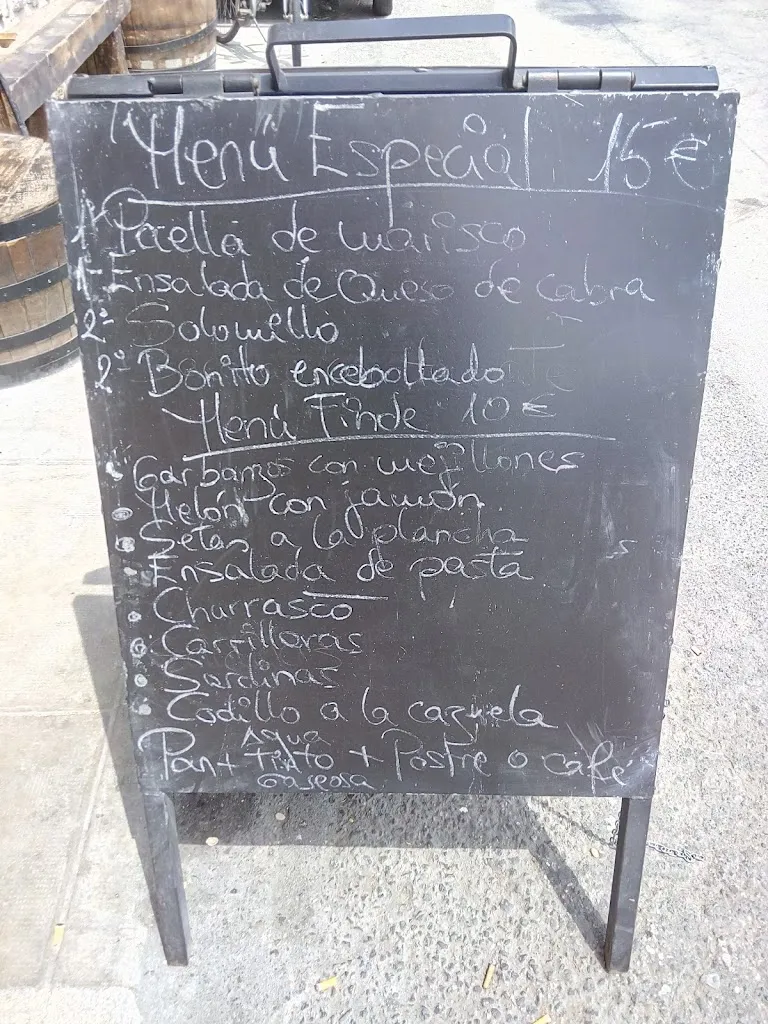 Menú Especial 15 €
1º Paella de marisco
1º Ensalada de Queso de cabra
2º Solomillo
2º Bonito encebollado
Menú Finde 10 €
Garbanzos con mejillones
Melón con jamón
Setas a la plancha
Ensalada de pasta
Churrasco
Carrilleras
Sardinas
Codillo a la cazuela
Agua
Pan + Tinto + Postre o café
Gaseosa